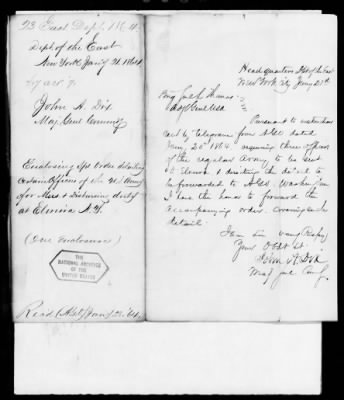 23 East Dept. 1864
Dept. of the East
New York Jan'y 21. 1864
John A. Dix
Maj. Genl. Commd'g
Enclosing Spl. Order detailing
Certain Officers of the U.S. Army
for Mus. & Disbursing duty
at Elmira N.Y.
(One Enclosure)
THE NATIONAL ARCHIVES
OF THE
UNITED STATES
Read (A.G.O.) Jany 23. 64
Head Quarters Dept of the East
New York City Jany 21st
Brig Genl L Thomas
Adj Genl USA
Pursuant to instructions
recd by telegram from AGO dated
Jany 20" 1864 requiring three officers
of the regular Army to be sent
to Elmira & directing the detail to
be forwarded to AGO. Washington
I have the honor to forward the
accompanying order, covering such
detail.
I am Sir very Respy
Your Obdt St
John A. Dix
Maj Gen Comg